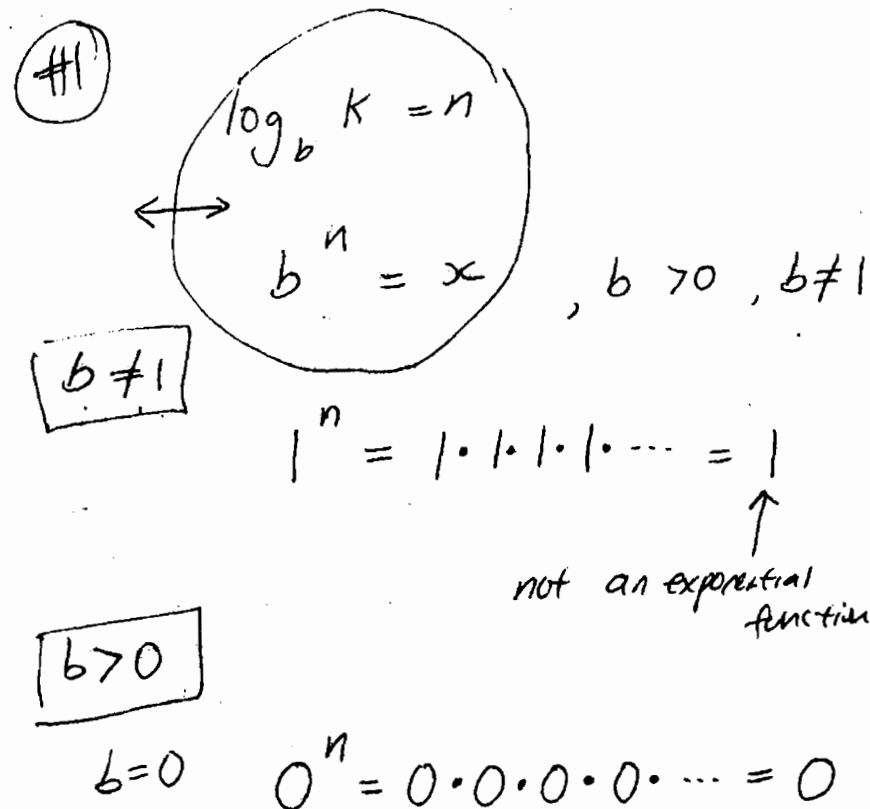 #1
log_b K = n
↔
b^n = x , b > 0 , b ≠ 1
b ≠ 1
1^n = 1 · 1 · 1 · 1 · ··· = 1
↑
not an exponential
function
b > 0
b = 0 0^n = 0 · 0 · 0 · 0 · ··· = 0